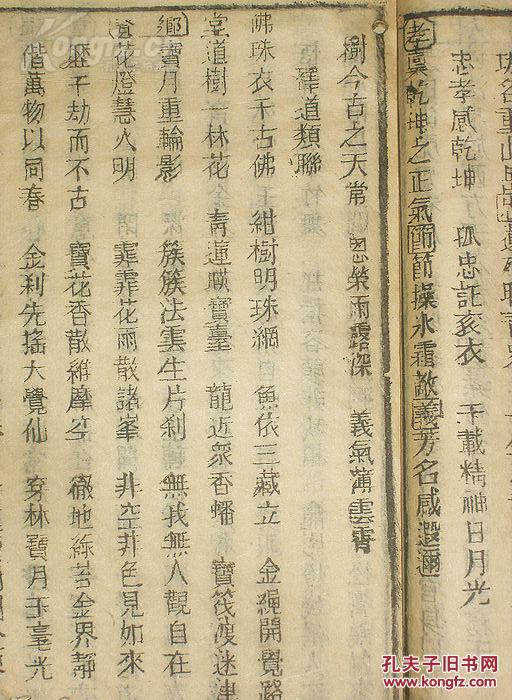 功名重山岳
忠孝感乾坤　孤忠託袞衣　千載精神日月光
孝稟乾坤之正氣　節操氷霜敵　義芳名感遐邇
樹今古之天常　恩榮雨露深　義氣薄雲霄
釋道類聯
佛珠衣千古佛　玉紺樹明珠網　白魚依三藏立　金繩開覺路
堂道樹一林花　青蓮暎寶臺　龍近衆香蟠　寶筏渡迷津
鄉寶月重輪影　簇簇法雲生片刹　無我無人觀自在
賞花燈慧火明　霏霏花雨散諸峯　非空非色見如來
歷千劫而不古　寶花香散維摩空　徹地綠苔金界靜
偕萬物以同春　金利先搖大覺仙　穿林寶月玉毫光
孔夫子旧书网
www.kongfz.com